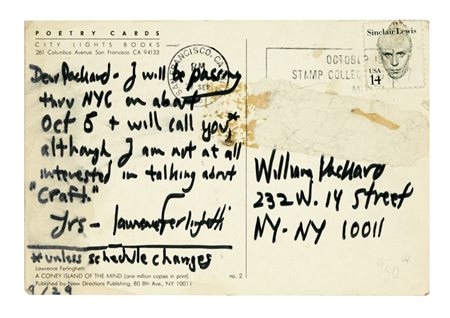 POETRY CARDS
CITY LIGHTS BOOKS
261 Columbus Avenue San Francisco CA 94133
Dear Packard - I will be passing
thru NYC on about
Oct 5 + will call you,*
although I am not at all
interested in talking about
"Craft."
Yrs - Lawrence Ferlinghetti
*unless schedule changes
Lawrence Ferlinghetti
A CONEY ISLAND OF THE MIND (one million copies in print) no. 2
Published by New Directions Publishing, 80 8th Ave., NY 10011
9/29
SAN FRANCISCO, CA
PM
SEP
OCTOBER IS
STAMP COLLEC
Sinclair Lewis
USA
14¢
William Packard
232 W. 14 Street
NY - NY 10011